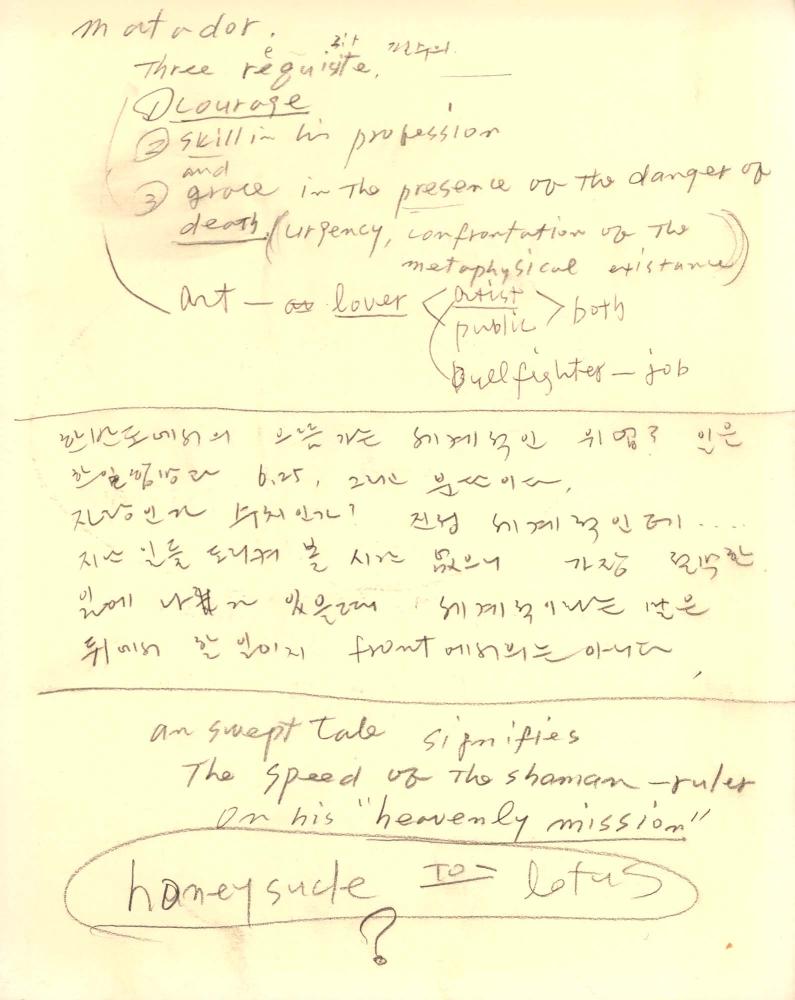 matador.
Three requisite.
① courage
② skill in his profession
and
③ grace in the presence of the danger of
death. (urgency, confrontation of the
metaphysical existance)
art — lover < artist > both
public
bullfighter — job
한반도에서의 으뜸가는 세계적인 위업? 일은
한일합방과 6.25, 그리고
자랑인가 수치인가? 진정 세계적인데....
지난 일들 도리켜 볼 시간 없으니 가장 절박한
일에 있을때 세계적이라는 말은
뒤에서 할 일이지 front에서의는 아니다,
an swept tale signifies
The speed of the shaman-ruler
on his "heavenly mission"
honeysucle TO lotus
?